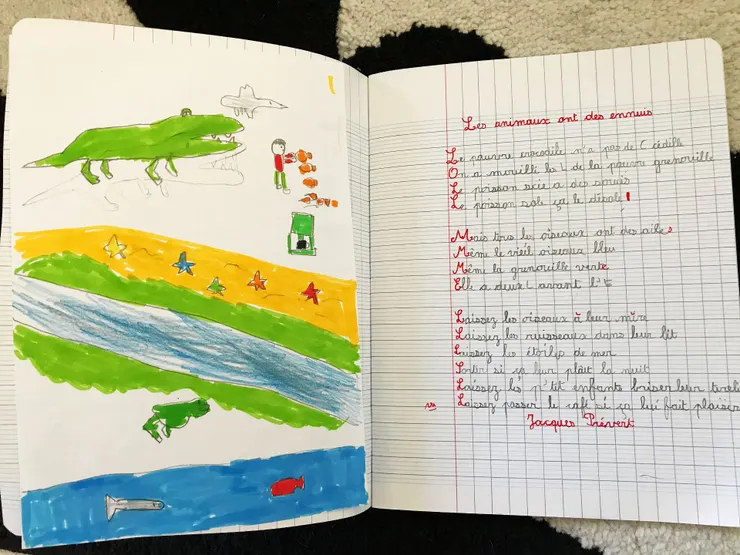 Les animaux ont des ennuis
Le pauvre crocodile n'a pas de C cédille
On a mouillé les L de la pauvre grenouille
Le poisson scie a des soucis
Le poisson sole ça le désole!
Mais tous les oiseaux ont des ailes
Même le vieil oiseau bleu
Même la grenouille verte
Elle a deux L avant l'E
Laissez les oiseaux à leur mère
Laissez les ruisseaux dans leur lit
Laissez les étoiles de mer
Sortir si ça leur plaît la nuit
Laissez les p'tit enfants briser leur tirelire
Laissez passer le café si ça lui fait plaisir
Jacques Prévert